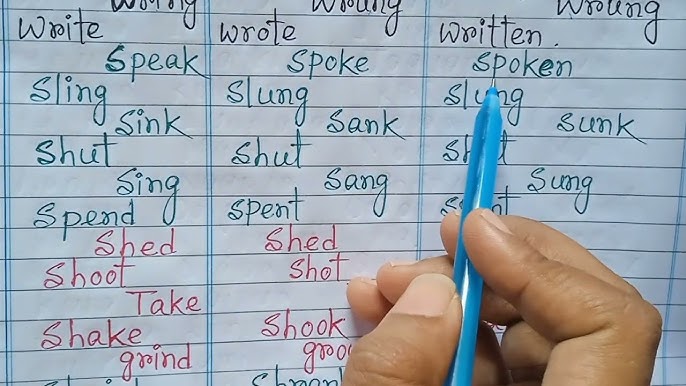 Wring Wrung Wrung
Write Wrote Written.
Speak Spoke Spoken
Sling Slung Slung
Sink Sank Sunk
Shut Shut
Sing Sang Sung
Spend Spent
Shed Shed
Shoot Shot
Take
Shake Shook
grind